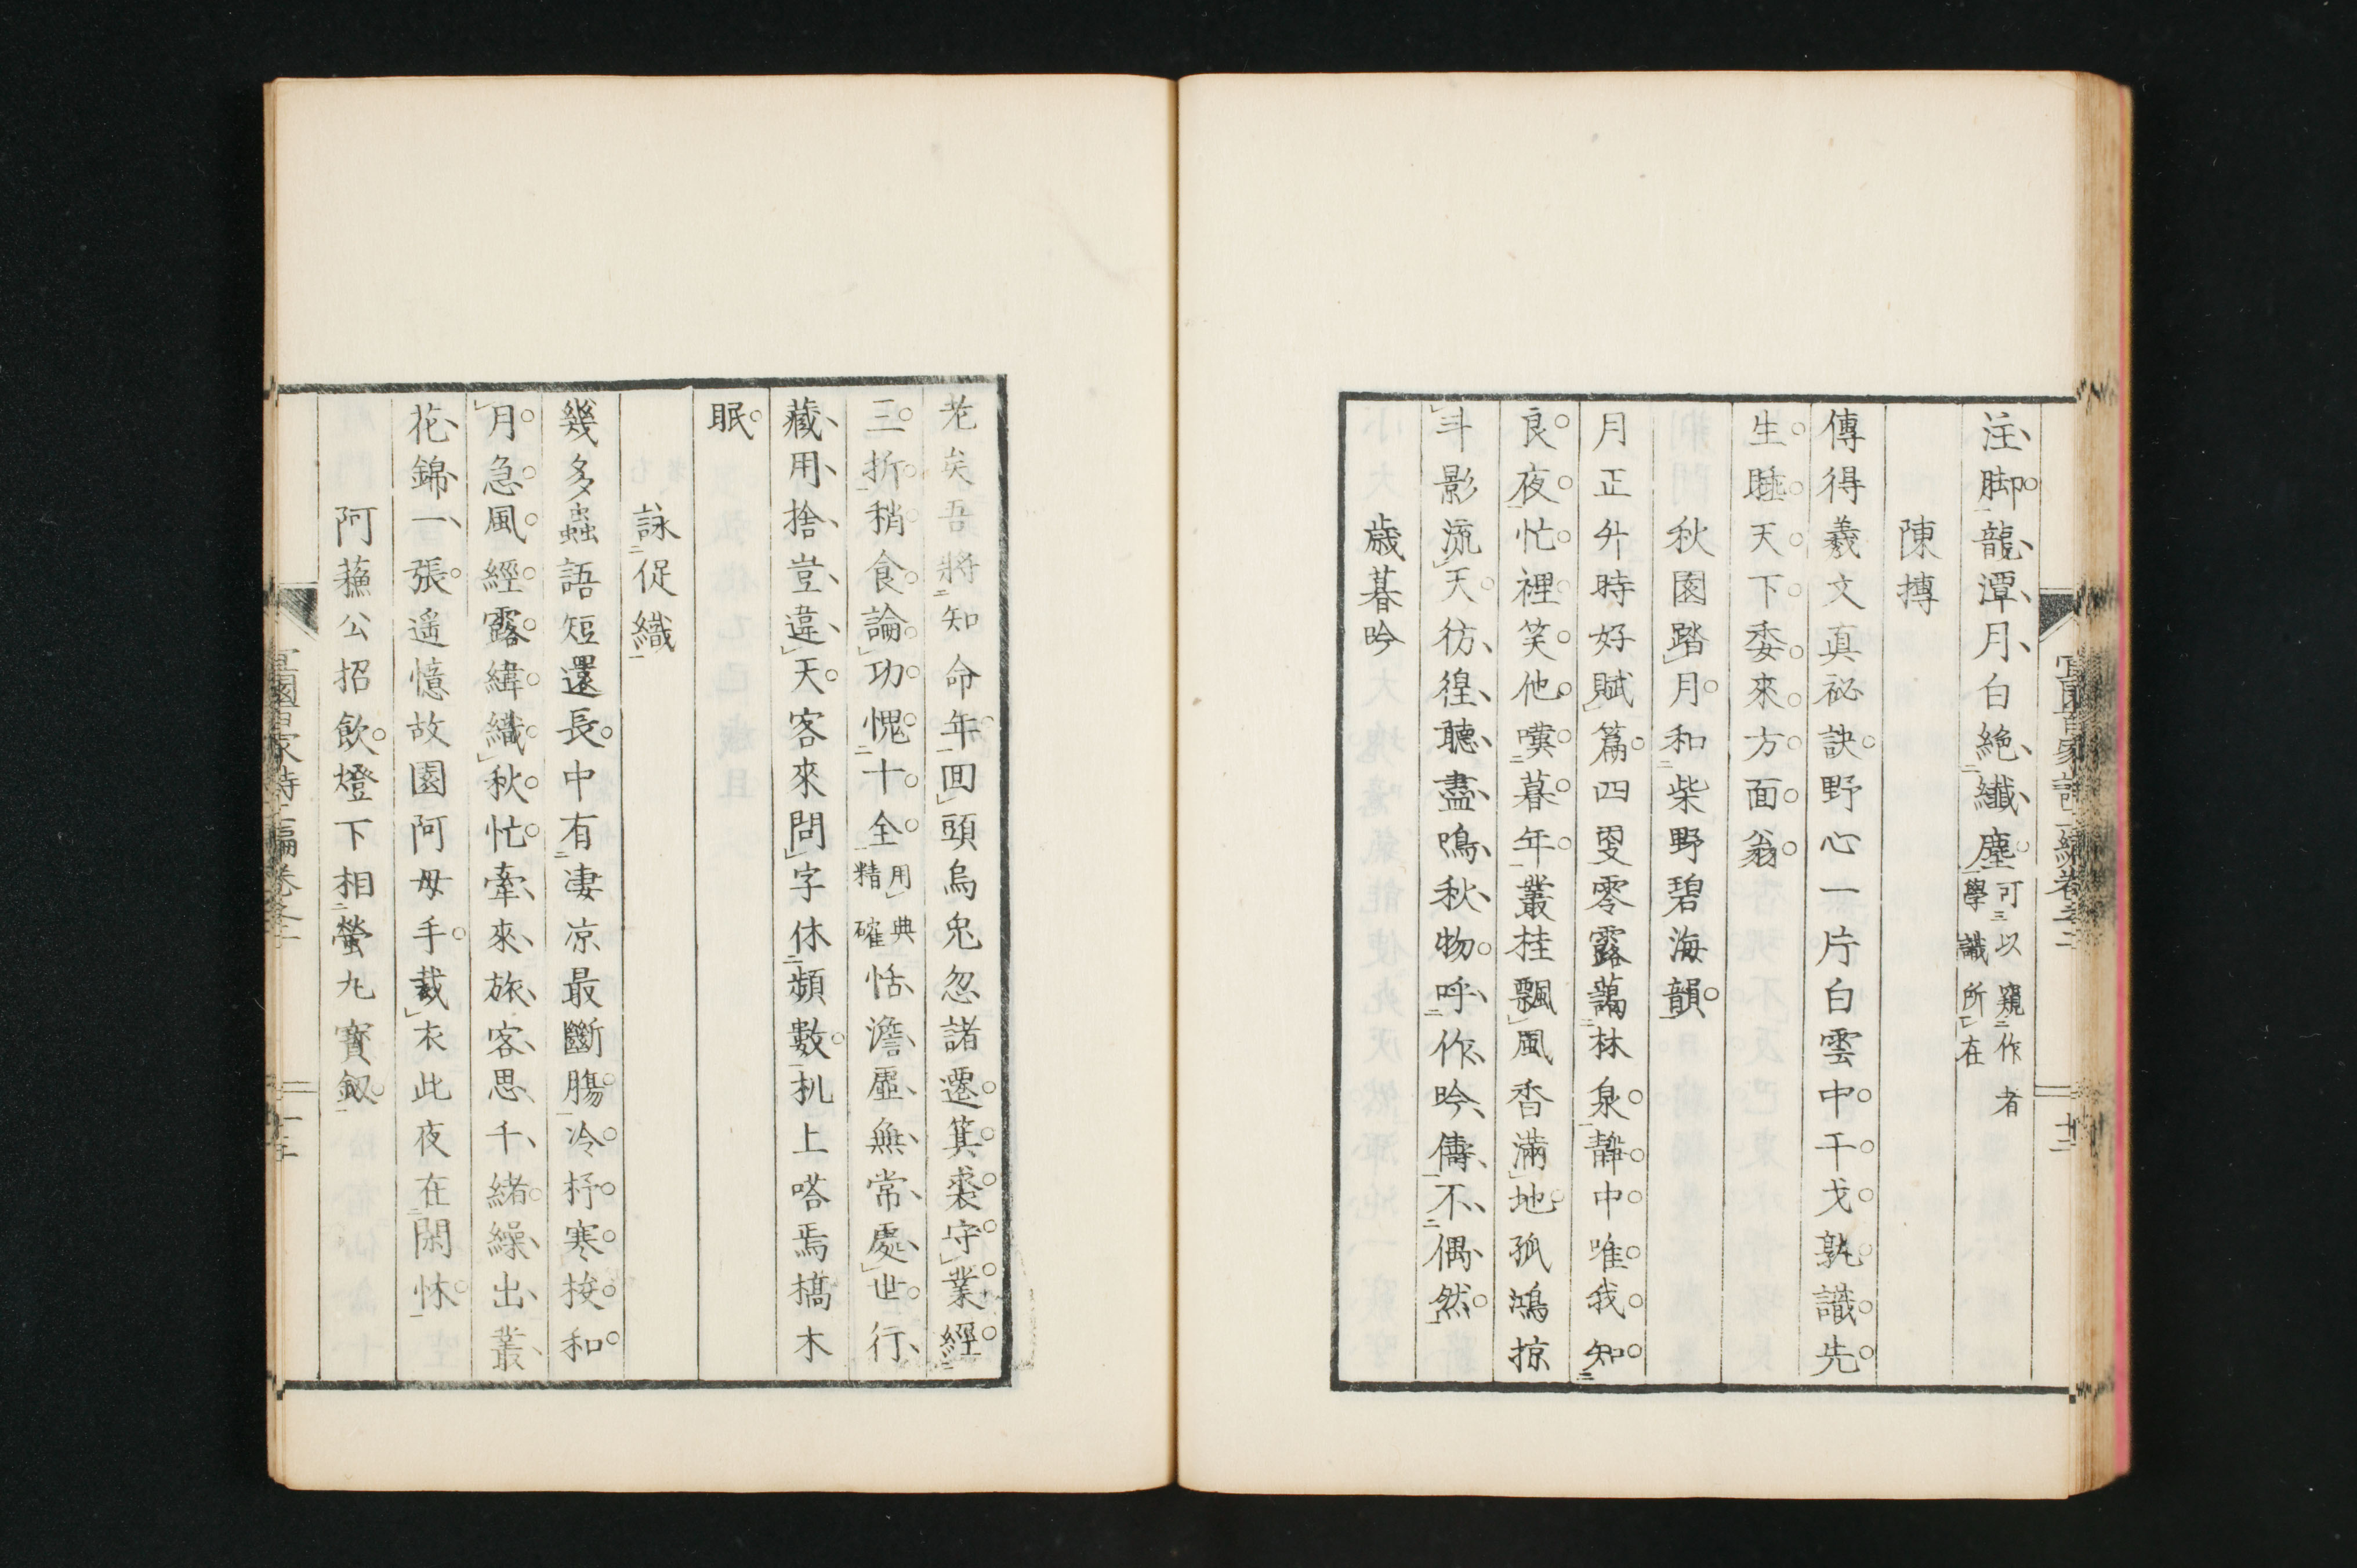 注脚龍潭月白絶纖塵可以窺作者學識所在
陳摶
傳得羲文真祕訣野心一片白雲中干戈孰識先
生睡天下委來方面翁
秋園踏月和柴野碧海韻
月正升時好賦篇四叟零露藹林泉靜中唯我知
良夜忙裡笑他嘆暮年叢桂飄風香滿地孤鴻掠
斗影流天彷徨聽盡鳴秋物呼作吟儔不偶然
歳暮吟
老矣吾將知命年回頭烏兔忽諸遷箕裘守業經
三折稍食論功愧十全用典精確恬澹虛無常處世行
藏用捨豈違天客來問字休頻數机上嗒焉槁木
眠
詠促織
幾多蟲語短還長中有凄凉最斷膓冷杼寒梭和
月急風經露緯織秋忙牽來旅客思千緒繰出叢
花錦一張遥憶故園阿母手裁衣此夜在閑牀
阿蘓公招飲燈下相螢丸寳釼